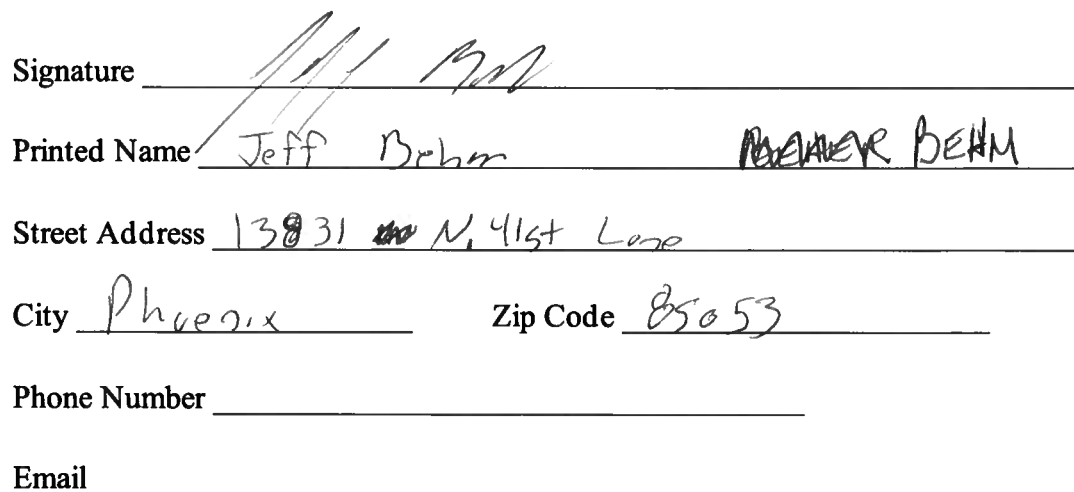 Signature
Printed Name Jeff Behm BEHM
Street Address 13831 N. 41st Lane
City Phoenix Zip Code 85053
Phone Number
Email